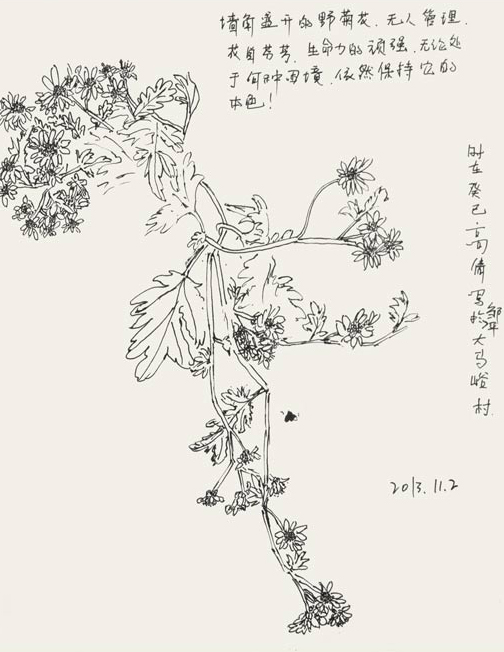 墙角盛开的野菊花、无人管理.
孜自芬芳、生命力的顽强、无论处
于何种困境、依然保持它的
本色!
时在癸巳高倩写邹平於大马峪村.
2013.11.2